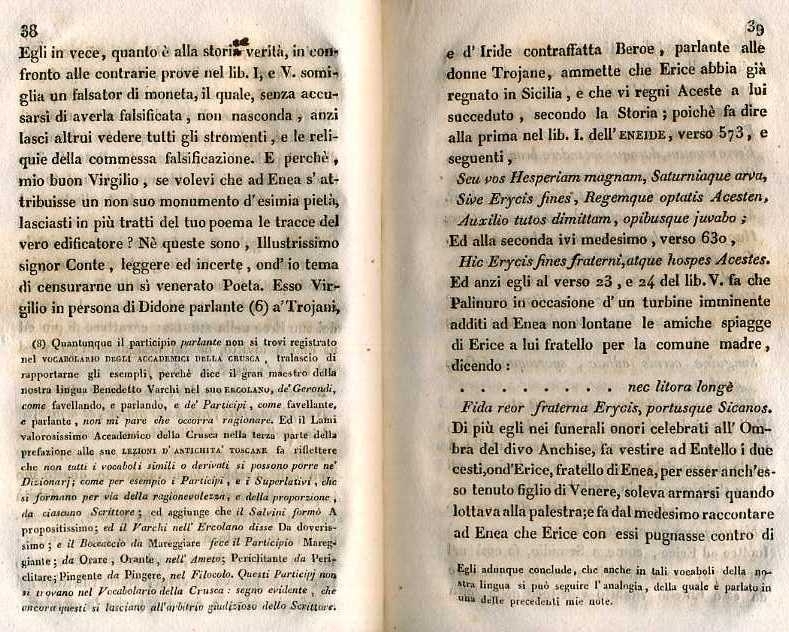 38
Egli in vece, quanto è alla storica verità, in con-
fronto alle contrarie prove nel lib. I, e V. somi-
glia un falsator di moneta, il quale, senza accu-
sarsi di averla falsificata, non nasconda, anzi
lasci altrui vedere tutti gli stromenti, e le reli-
quie della commessa falsificazione. E perchè,
mio buon Virgilio, se volevi che ad Enea s' at-
tribuisse un non suo monumento d'esimia pietà,
lasciasti in più tratti del tuo poema le tracce del
vero edificatore? Nè queste sono, Illustrissimo
signor Conte, leggere ed incerte, ond' io tema
di censurarne un sì venerato Poeta. Esso Vir-
gilio in persona di Didone parlante (6) a' Trojani,
(8) Quantunque il participio parlante non si trovi registrato
nel VOCABOLARIO DEGLI ACCADEMICI DELLA CRUSCA, tralascio di
rapportarne gli esempli, perchè dice il gran maestro della
nostra lingua Benedetto Varchi nel suo ERCOLANO, de' Gerondi,
come favellando, e parlando, e de' Participi, come favellante,
e parlante, non mi pare che occorra ragionare. Ed il Lami
valorosissimo Accademico della Crusca nella terza parte della
prefazione alle sue LEZIONI D' ANTICHITA' TOSCANE fa riflettere
che non tutti i vocaboli simili o derivati si possono porre ne'
Dizionarj; come per esempio i Participi, e i Superlativi, che
si formano per via della ragionevolezza, e della proporzione,
da ciascuno Scrittore; ed aggiunge che il Salvini formò A
propositissimo; ed il Varchi nell' Ercolano disse Da doveris-
simo; e il Boccaccio da Mareggiare fece il Participio Mareg-
giante; da Orare, Orante, nell' Ameto; Periclitante da Peri-
clitare; Pingente da Pingere, nel Filocolo. Questi Participj non
si trovano nel Vocabolario della Crusca: segno evidente, che
ancora questi si lasciano all'arbitrio giudizioso dello Scrittore.
39
e d' Iride contraffatta Beroe, parlante alle
donne Trojane, ammette che Erice abbia già
regnato in Sicilia, e che vi regni Aceste a lui
succeduto, secondo la Storia; poichè fa dire
alla prima nel lib. I. dell' ENEIDE, verso 573, e
seguenti,
Seu vos Hesperiam magnam, Saturniaque arva,
Sive Erycis fines, Regemque optatis Acesten,
Auxilio tutos dimittam, opibusque juvabo;
Ed alla seconda ivi medesimo, verso 630,
Hic Erycis fines fraterni, atque hospes Acestes.
Ed anzi egli al verso 23, e 24 del lib. V. fa che
Palinuro in occasione d' un turbine imminente
additi ad Enea non lontane le amiche spiagge
di Erice a lui fratello per la comune madre,
dicendo:
. . . . . . . . nec litora longè
Fida reor fraterna Erycis, portusque Sicanos.
Di più egli nei funerali onori celebrati all' Om-
bra del divo Anchise, fa vestire ad Entello i due
cesti, ond'Erice, fratello di Enea, per esser anch'es-
so tenuto figlio di Venere, soleva armarsi quando
lottava alla palestra; e fa dal medesimo raccontare
ad Enea che Erice con essi pugnasse contro di
Egli adunque conclude, che anche in tali vocaboli della no-
stra lingua si può seguire l'analogia, della quale è parlato in
una delle precedenti mie note.